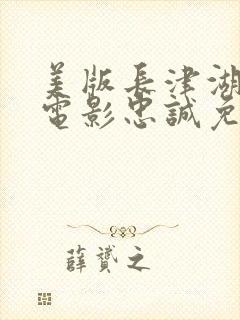 美版長津湖
電影忠誠免
薛贇之